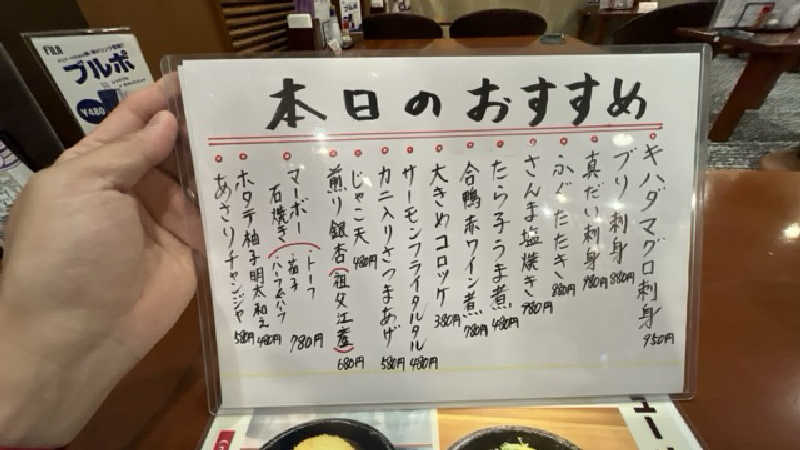 本日のおすすめ
キハダマグロ刺身 950円
ブリ刺身 880円
真だい刺身 980円
ふぐたたき 880円
さんま塩焼き 980円
たら子うま煮 480円
合鴨赤ワイン煮 780円
大きめコロッケ 380円
サーモンフライタルタル 480円
カニ入りさつまあげ 580円
じゃこ天 480円
煎り銀杏(祖父江産) 680円
マーボー石焼き
・トーフ
・茄子
・ハーフ&ハーフ
780円
ホタテ柚子明太和え 480円
あさりチャンジャ 580円
ブルポ
¥480
ュー